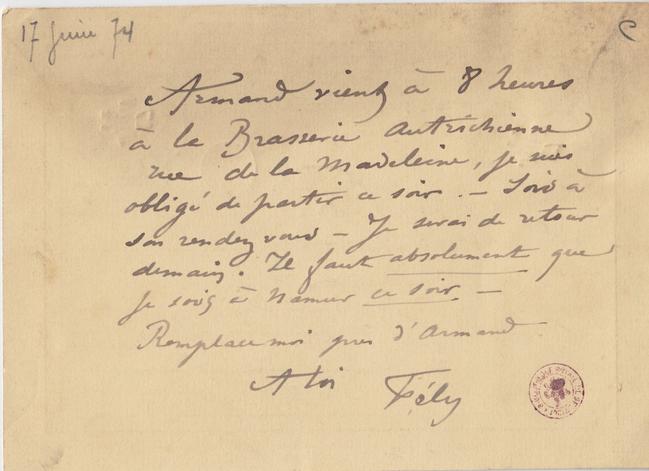 17 Juin 74
C
Armand vient à 8 heures
à la Brasserie autrichienne
rue de la Madeleine, je suis
obligé de partir ce soir. – Sois à
son rendez vous – Je serai de retour
demain. Il faut absolument que
je sois à Namur ce soir. –
Remplace moi près d'Armand.
A toi Fély